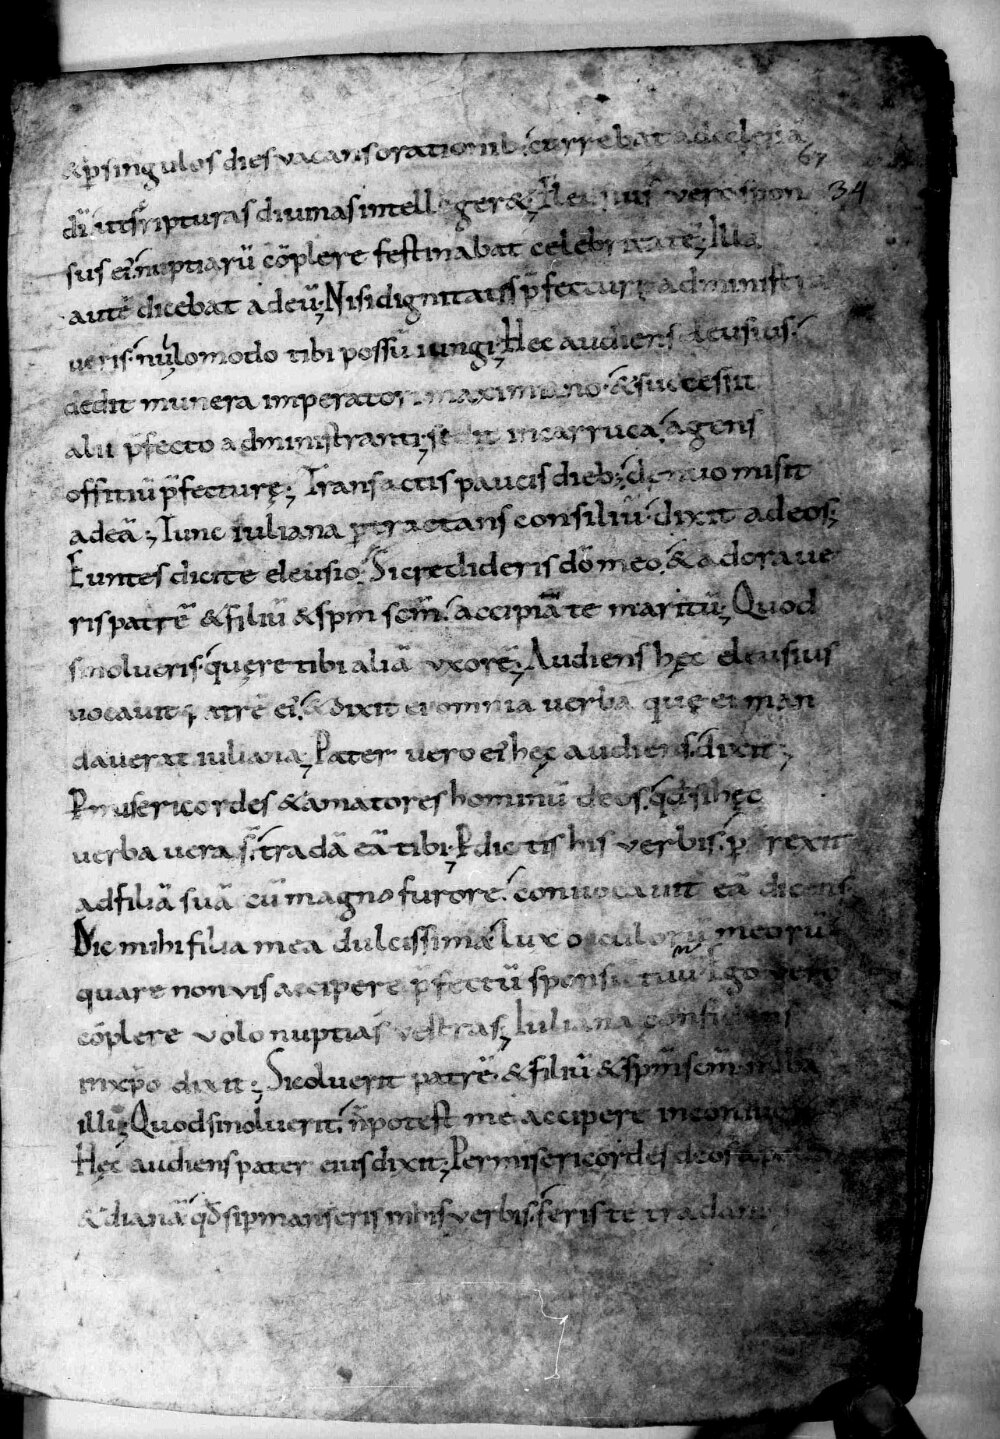 &p̄singulos dies vacans orationib; currebat adecclesiā
67
dī. ut scripturas diuinas intelleger&; Eleusius vero spon 34
sus ei. nuptiarū cōplere festinabat celebritatē; Illa
autē dicebat adeū; Nisi dignitatis p̄fecturę administra
ueris. nullomodo tibi possū iungi; Hec audiens eleusius.
dedit munera imperatori maximiano. & successit
alii p̄fecto administranti; sedit incarruca. agens
offitiū p̄fecturę; Transactis paucis dieb; denuo misit
adeā; Tunc iuliana p̱tractans consiliū dixit adeos;
Euntes dicite eleusio. Si credideris dō meo. & adoraue
ris patrē & filiū & sp̄m sc̄m. accipiā te maritū; Quod
sinolueris. quęre tibi aliā vxorē; Audiens hęc eleusius
uocauit patrē ei. & dixit ei omnia uerba quę ei man
dauerat iuliana; Pater uero ei hęc audiens. dixit;
P̱ misericordes & amatores hominū deos. qd̄ si hęc
uerba uera s̄. tradā eā tibi; P̱dictis his verbis. p̱rexit
adfiliā suā cū magno furore. conuocauit eā dicens;
Dic mihi filia mea dulcissima lux oculorū meorū
quare non vis accipere p̄fectū sponsū tuū. Ego vero
cōplere volo nuptias vestras; Iuliana confidens
inxp̄o dixit; Si coluerit patrē. & filiū & sp̄m sc̄m. nubā
illi; Quod si noluerit. n̄ potest me accipere
Hęc audiens pater eius dixit; Per misericordes deos
& dianā qd̄ si p̱manseris inhis verbis. feris te tradam